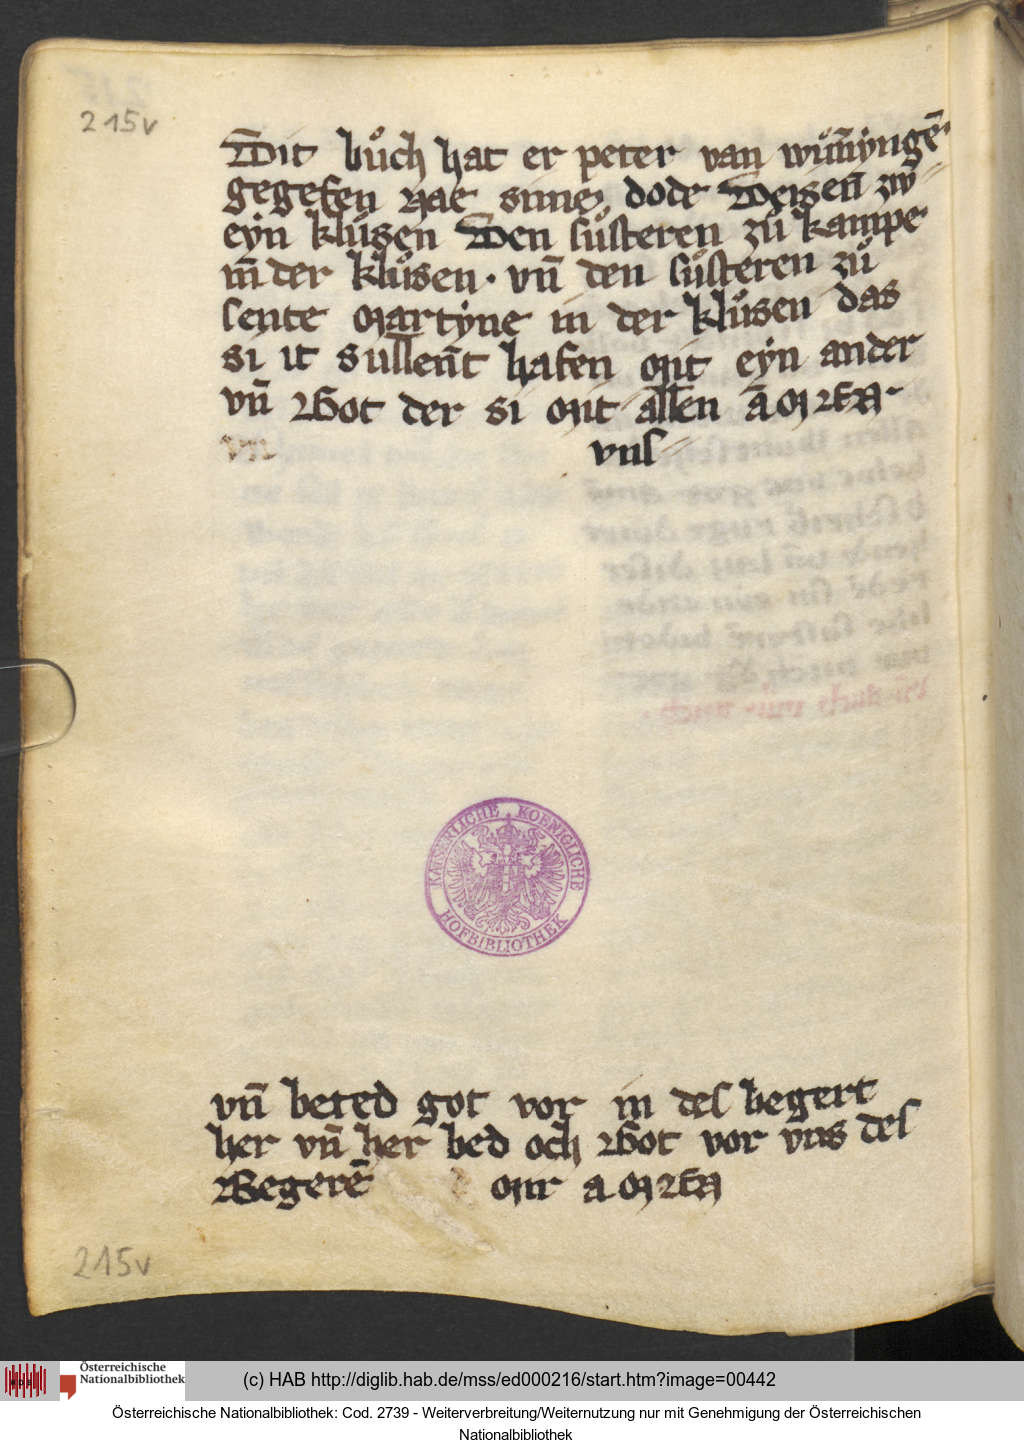 215v
Dit bůch hat er peter van wūnỹngē
gegefen nae sime dode Deisen zw
eyn klůsen Den sůsteren zů kampe
in der klůsen · vn̄ den sůsteren zů
sente Martyne in der klůsen das
si it sullen̄t hafen mit eyn ander
vn̄ Got der si mit allen āmen
vns
vn̄ beted got vor in des begert
her vn̄ her bed och Got vor vns des
Begerē mir amen
KAISERLICHE KOENIGLICHE
HOFBIBLIOTHEK
215v
Österreichische
Nationalbibliothek
(c) HAB http://diglib.hab.de/mss/ed000216/start.htm?image=00442
Österreichische Nationalbibliothek: Cod. 2739 - Weiterverbreitung/Weiternutzung nur mit Genehmigung der Österreichischen
Nationalbibliothek